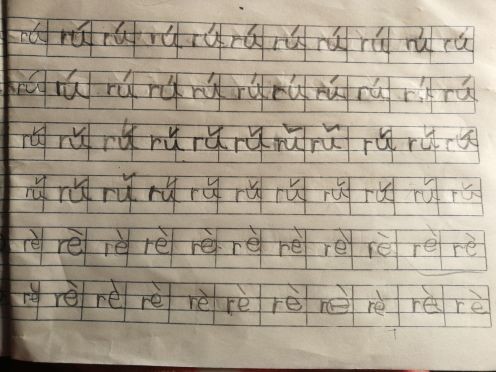 rú rú rú rú rú rú rú rú rú rú rú
rú rú rú rú rú rú rú rú rú rú rú
rǔ rǔ rǔ rǔ rǔ rǔ rǔ rǔ rǔ rǔ rǔ
rǔ rǔ rǔ rǔ rǔ rǔ rǔ rǔ rǔ rǔ rǔ
rè rè rè rè rè rè rè rè rè rè rè
rè rè rè rè rè rè rè rè rè rè rè